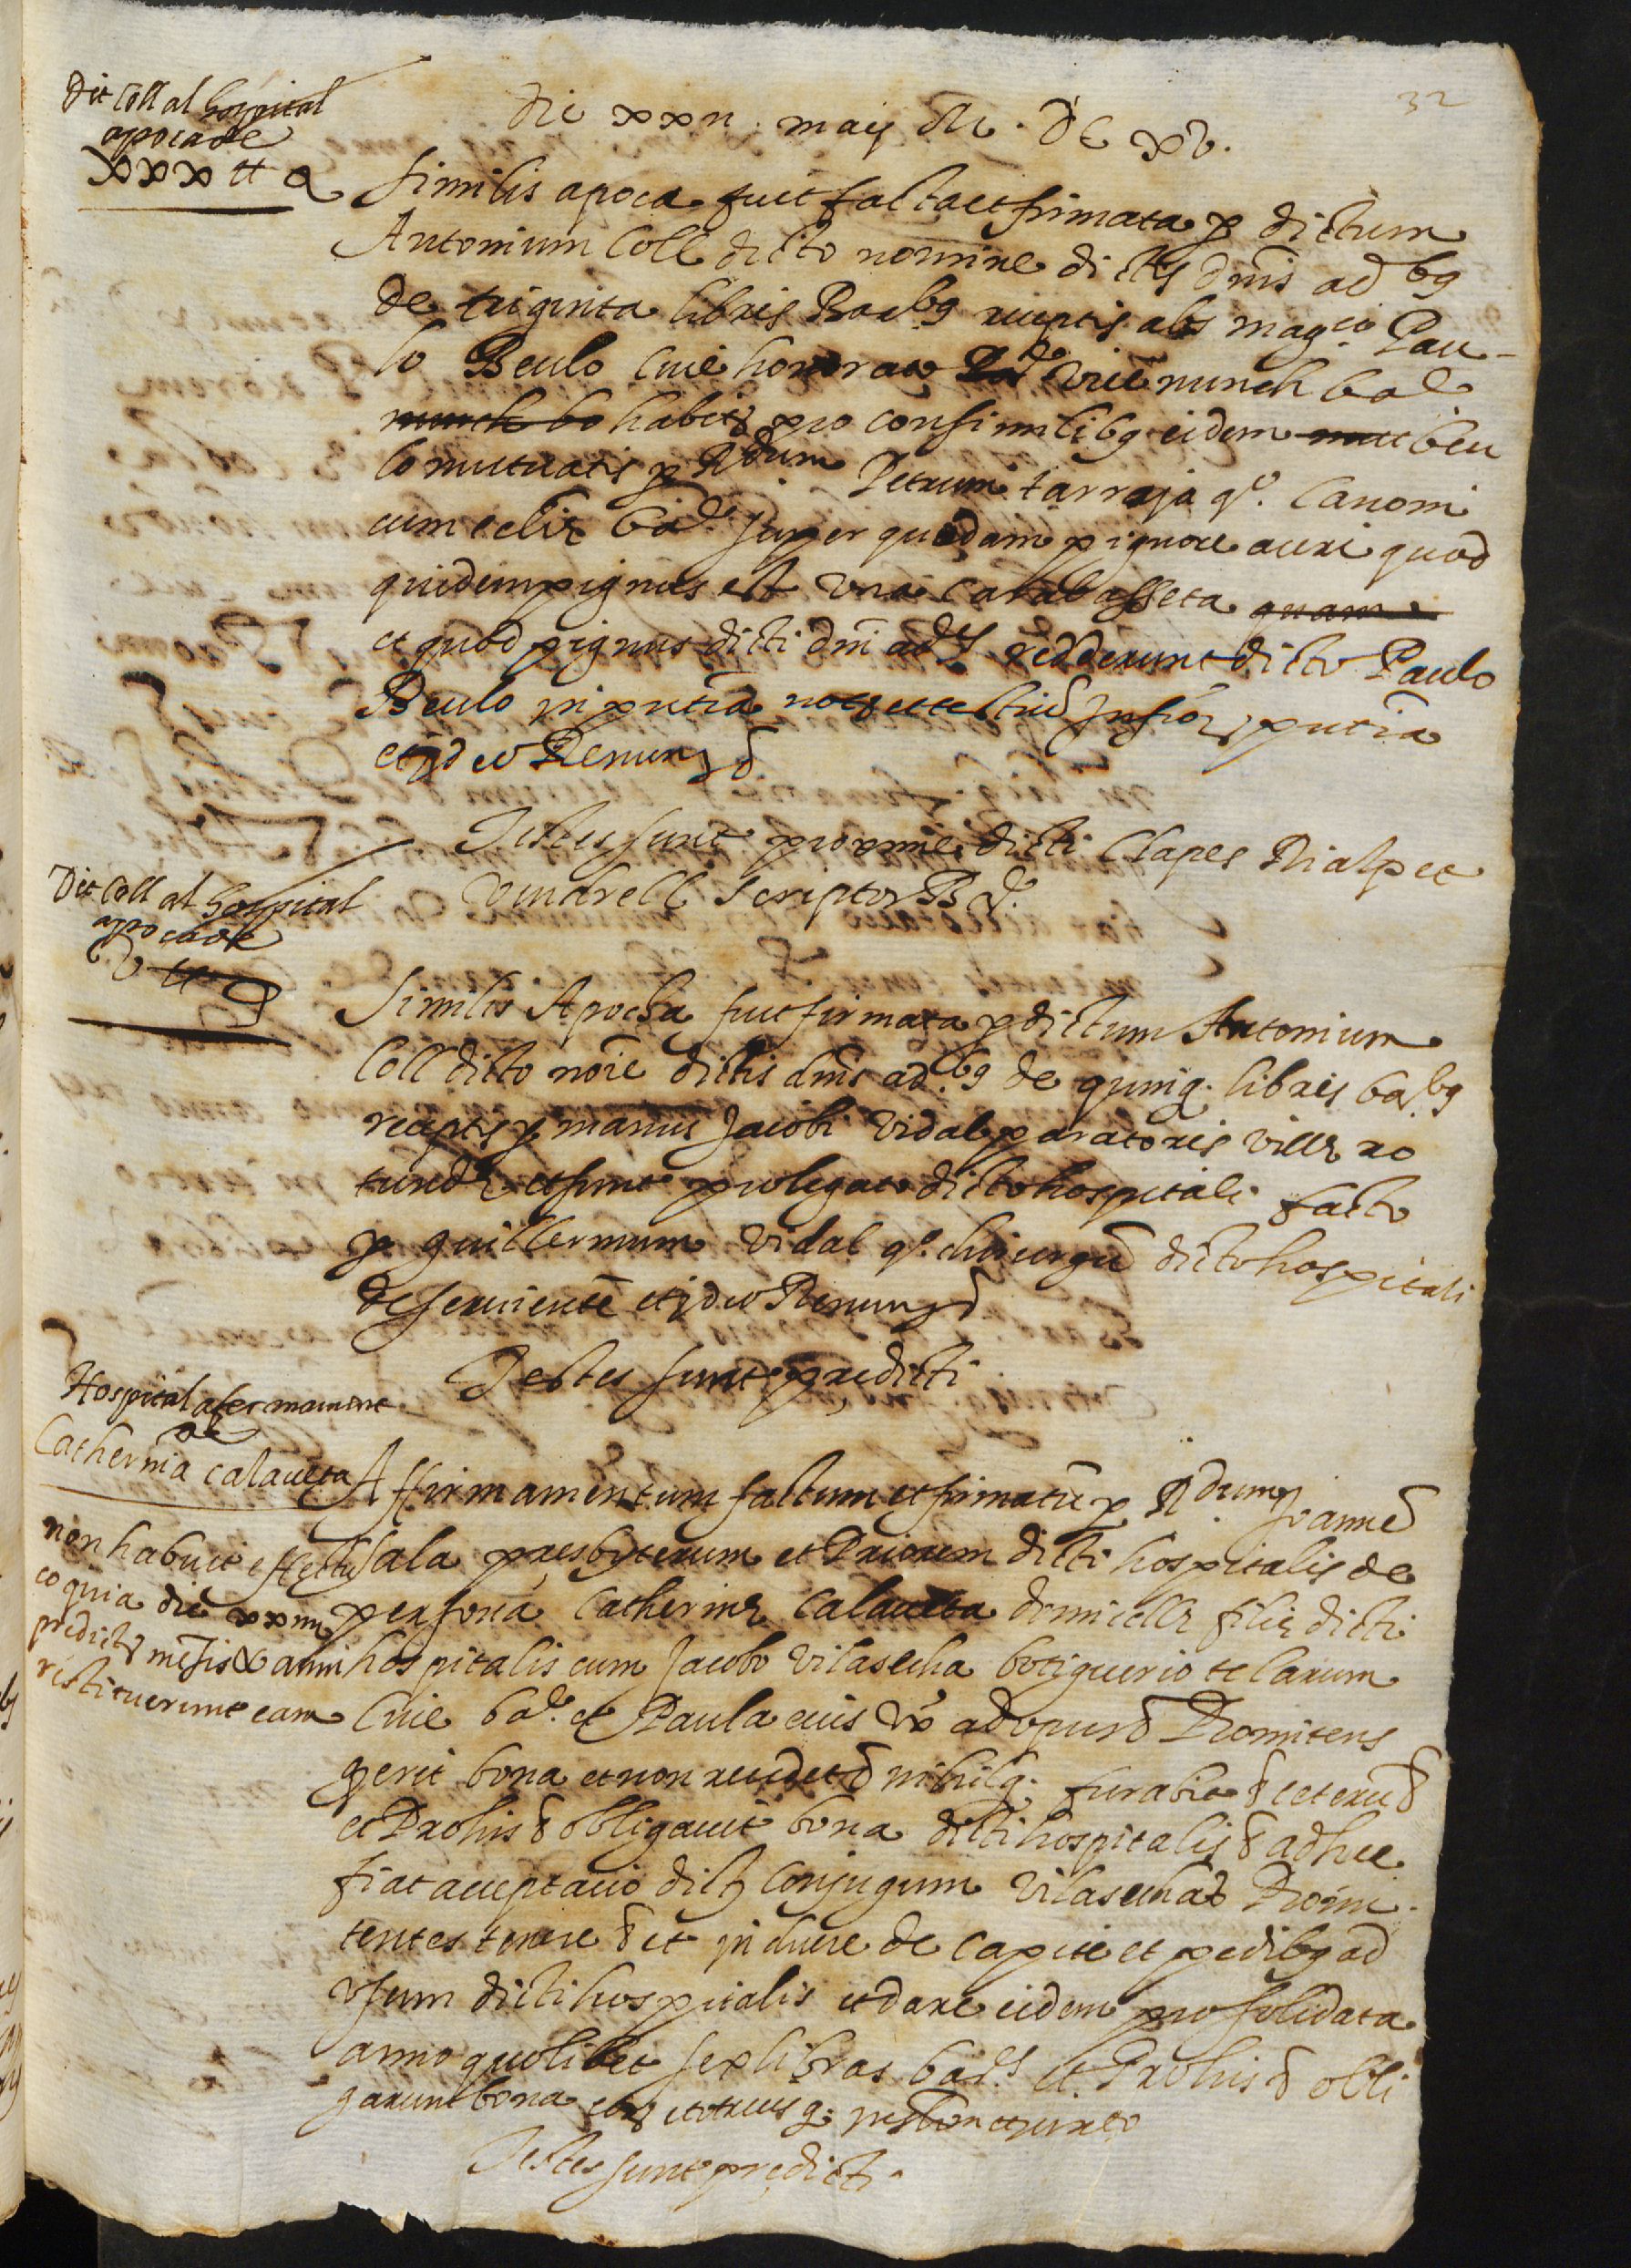 32
Dit Coll al hospital
apoca de
xxx tt
die xxii . maij M . DC xv.
Similis apoca fuit facta et firmata p dictum
Antonium Coll dicto nomine dictis dnis ad bg
de triginta libris Barbg receptis abs mag.co Pau-
lo Beulo Cive honorato
habitis pro consimilibg eidem beu
lo mutuatis p Rdum. Petrum tarroja q.o Canoni
cum eclie Bar. super quodam pignore auri quod
quidem pignus est una Carabasseta quam
et quod pignus dicti dni ad.s redderunt dicto Paulo
Beulo in pntia not et testium infror pntia
et ideo Renun
Testes sunt proxime dicti Clapes Rialp et
Vendrell scriptor B.
Dit Coll al hospital
apoca de
v tt
Similis Apocha fuit firmata p dictum Antonium
Coll dicto noie dictis dnis ad.bg de quinq. libris bar.bg
receptis p manus Jacobi Vidal paratoris ville ro
tunde et sunt pro legato dicto hospitali facto
p guillermum Vidal q.o chirurgu dicto hospitali
deserviente et ideo Renun
Testes sunt predicti
Hospital afermament
de
Catherina calaveta
non habuit effectu
eo quia die xxiiii
predicti mesis & anni
restituerunt eam
Affirmamentum factum et firmatu p Rdum. Joanne
sala presbyterum et Priorem dicti hospitalis de
persona Catherine Calaveta domicelle filie dicti
hospitalis cum Jacobo vilasecha botiguerio telarum
Cive bar. et Paula eius ux ad opus Promitens
q erit bona et non recedet nihilq. furabit et eru
et Prohis obligavit bona dicti hospitalis ad hec
fiat acceptatio dict Conjugum Vilasecha Promi
tentes tenere et induere de capite et pedibg ad
usum dicti hospitalis et dare eidem pro solidata
anno quolibet sex libras bar.s et Prohis obli
garunt bona eor et utriusq.
Testes sunt predicti.